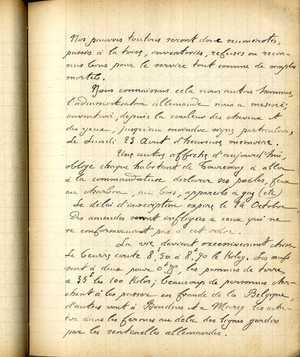 Nos pauvres toutous seront donc numérotés,
passés à la toise, inventoriés, refusés ou recon-
nus bons pour le service tout comme de simples
mortels.
Nous connaissons cela nous autres hommes,
l'administration allemande nous a mesuré,
inventorié, depuis la couleur des cheveux et
des yeux, jusqu'au moindre signe particulier,
le Lundi 23 Août d'heureuse mémoire.
Une autre affiche d'aujourd'hui,
oblige chaque habitant de Tourcoing à aller
à la commandanture, déclarer ses poêles, feux
au charbon, au bois, appareils à gaz (etc)
Le délai d'inscription expire le 14 Octobre
Des amendes seront infligées à ceux qui ne
se conformeraient pas à cet ordre.
La vie devient excessivement chère
Le beurre coûte 8,50 à 8,90 le Kilog. Les œufs
sont à deux pour 0.95, les pommes de terre
à 35f les 100 kilog; beaucoup de personnes cher-
chent à les passer en fraude de la Belgique
d'autres vont à Bondues et à Marcq les ache-
ter dans les fermes au delà des lignes gardées
par les sentinelles allemandes.